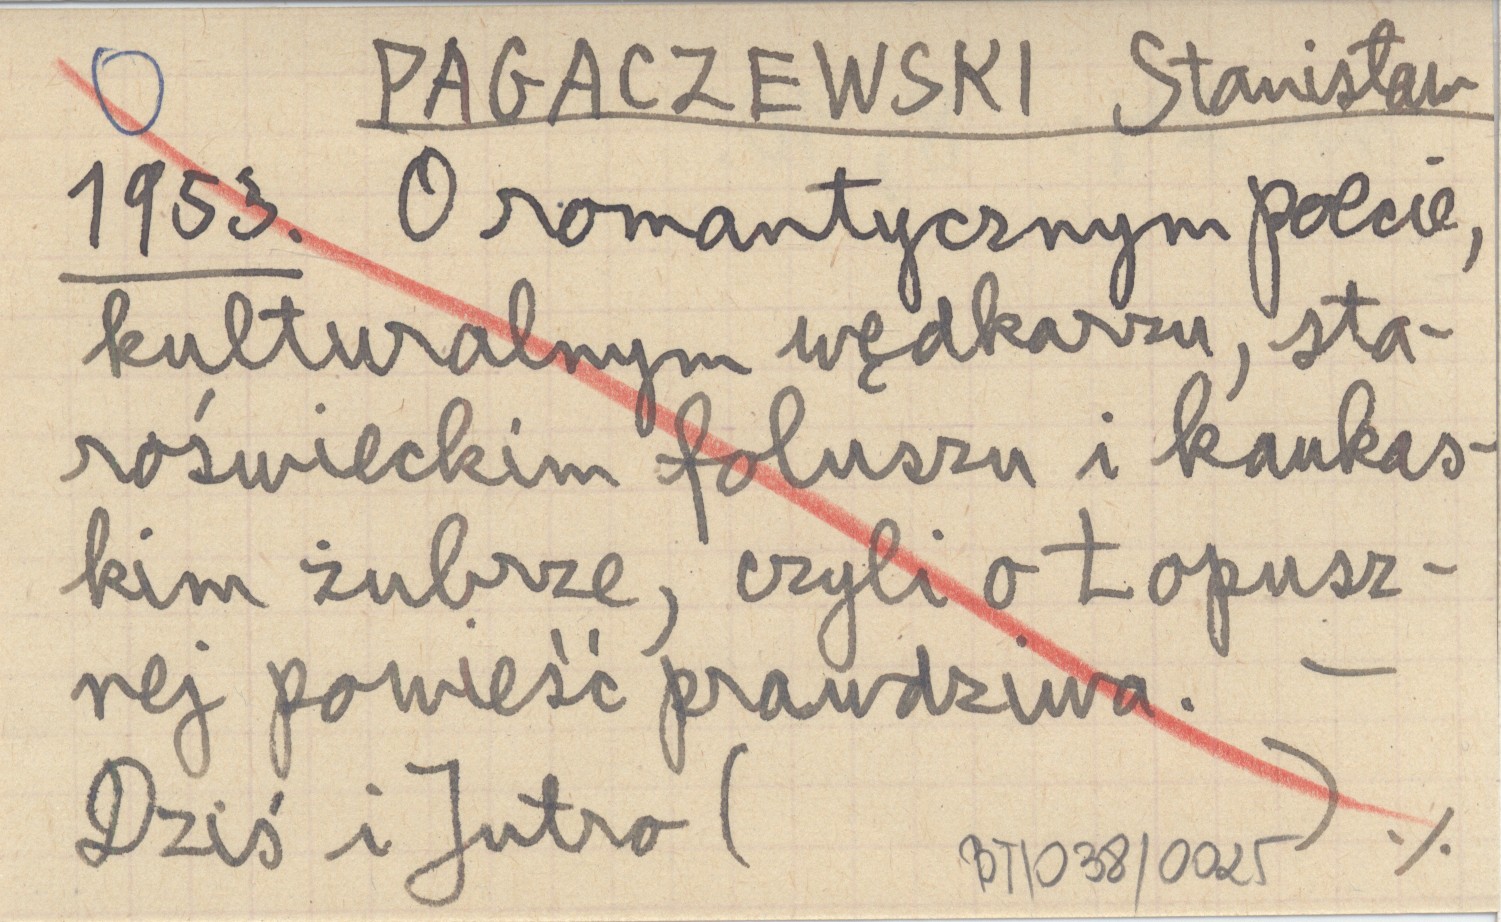 O PAGACZEWSKI Stanisław
1953. O romantycznym poecie,
kulturalnym wędkarzu, sta-
roświeckim foluszu i kaukas-
kim żubrze, czyli o Łopusz-
nej powieść prawdziwa. —
Dziś i Jutro ( ) ./.
BT/038/0025